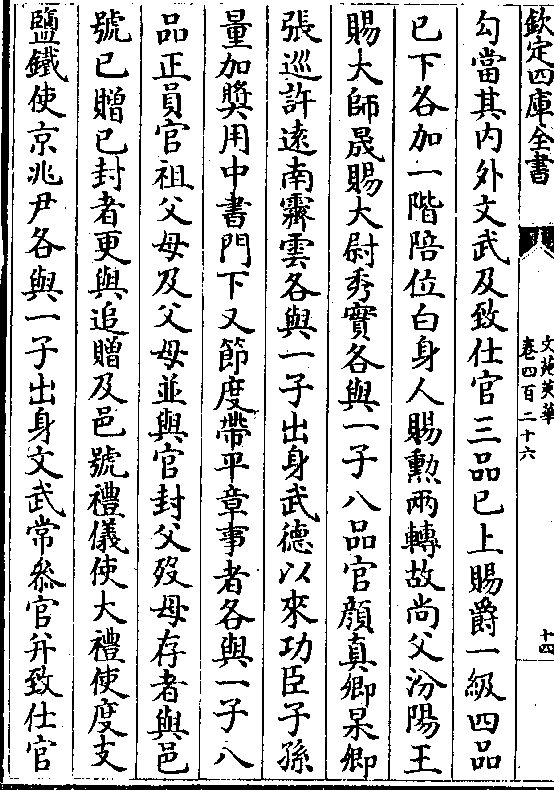 欽定四庫全書
文苑英華
卷四百二十六
十四
勾當其内外文武及致仕官三品已上賜爵一級四品
已下各加一階陪位白身人賜勲兩轉故尚父汾陽王
賜大師晟賜大尉秀實各與一子八品官顔真卿杲卿
張巡許逺南霽雲各與一子出身武德以來功臣子孫
量加奬用中書門下又節度帶平章事者各與一子八
品正員官祖父母及父母並與官封父歿母存者與邑
號已贈已封者更與追贈及邑號禮儀使大禮使度支
鹽鐵使京兆尹各與一子出身文武常叅官并致仕官